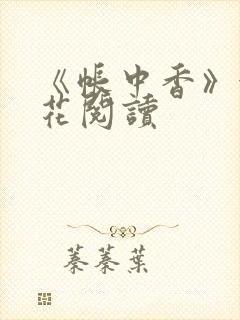 《帳中香》
花閱讀
蓁蓁葉